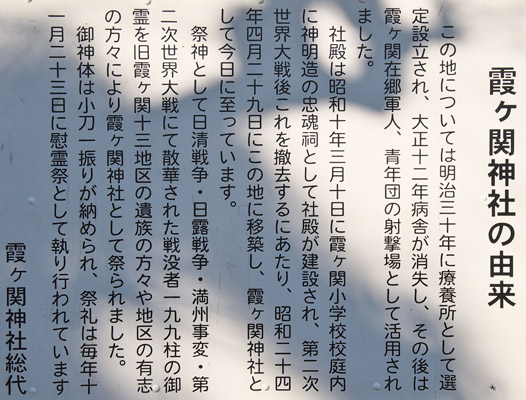 霞ヶ関神社の由来
この地については明治三十年に療養所として選
定設立され、大正十二年病舎が消失し、その後は
霞ヶ関在郷軍人、青年団の射撃場として活用され
ました。
社殿は昭和十年三月十日に霞ヶ関小学校校庭内
に神明造の忠魂祠として社殿が建設され、第二次
世界大戦後これを撤去するにあたり、昭和二十四
年四月二十九日にこの地に移築し、霞ヶ関神社と
して今日に至っています。
祭神として日清戦争・日露戦争・満州事変・第
二次世界大戦にて散華された戦没者一九九柱の御
霊を旧霞ヶ関十三地区の遺族の方々や地区の有志
の方々により霞ヶ関神社として祭られました。
御神体は小刀一振りが納められ、祭礼は毎年十
一月二十三日に慰霊祭として執り行われています
霞ヶ関神社総代